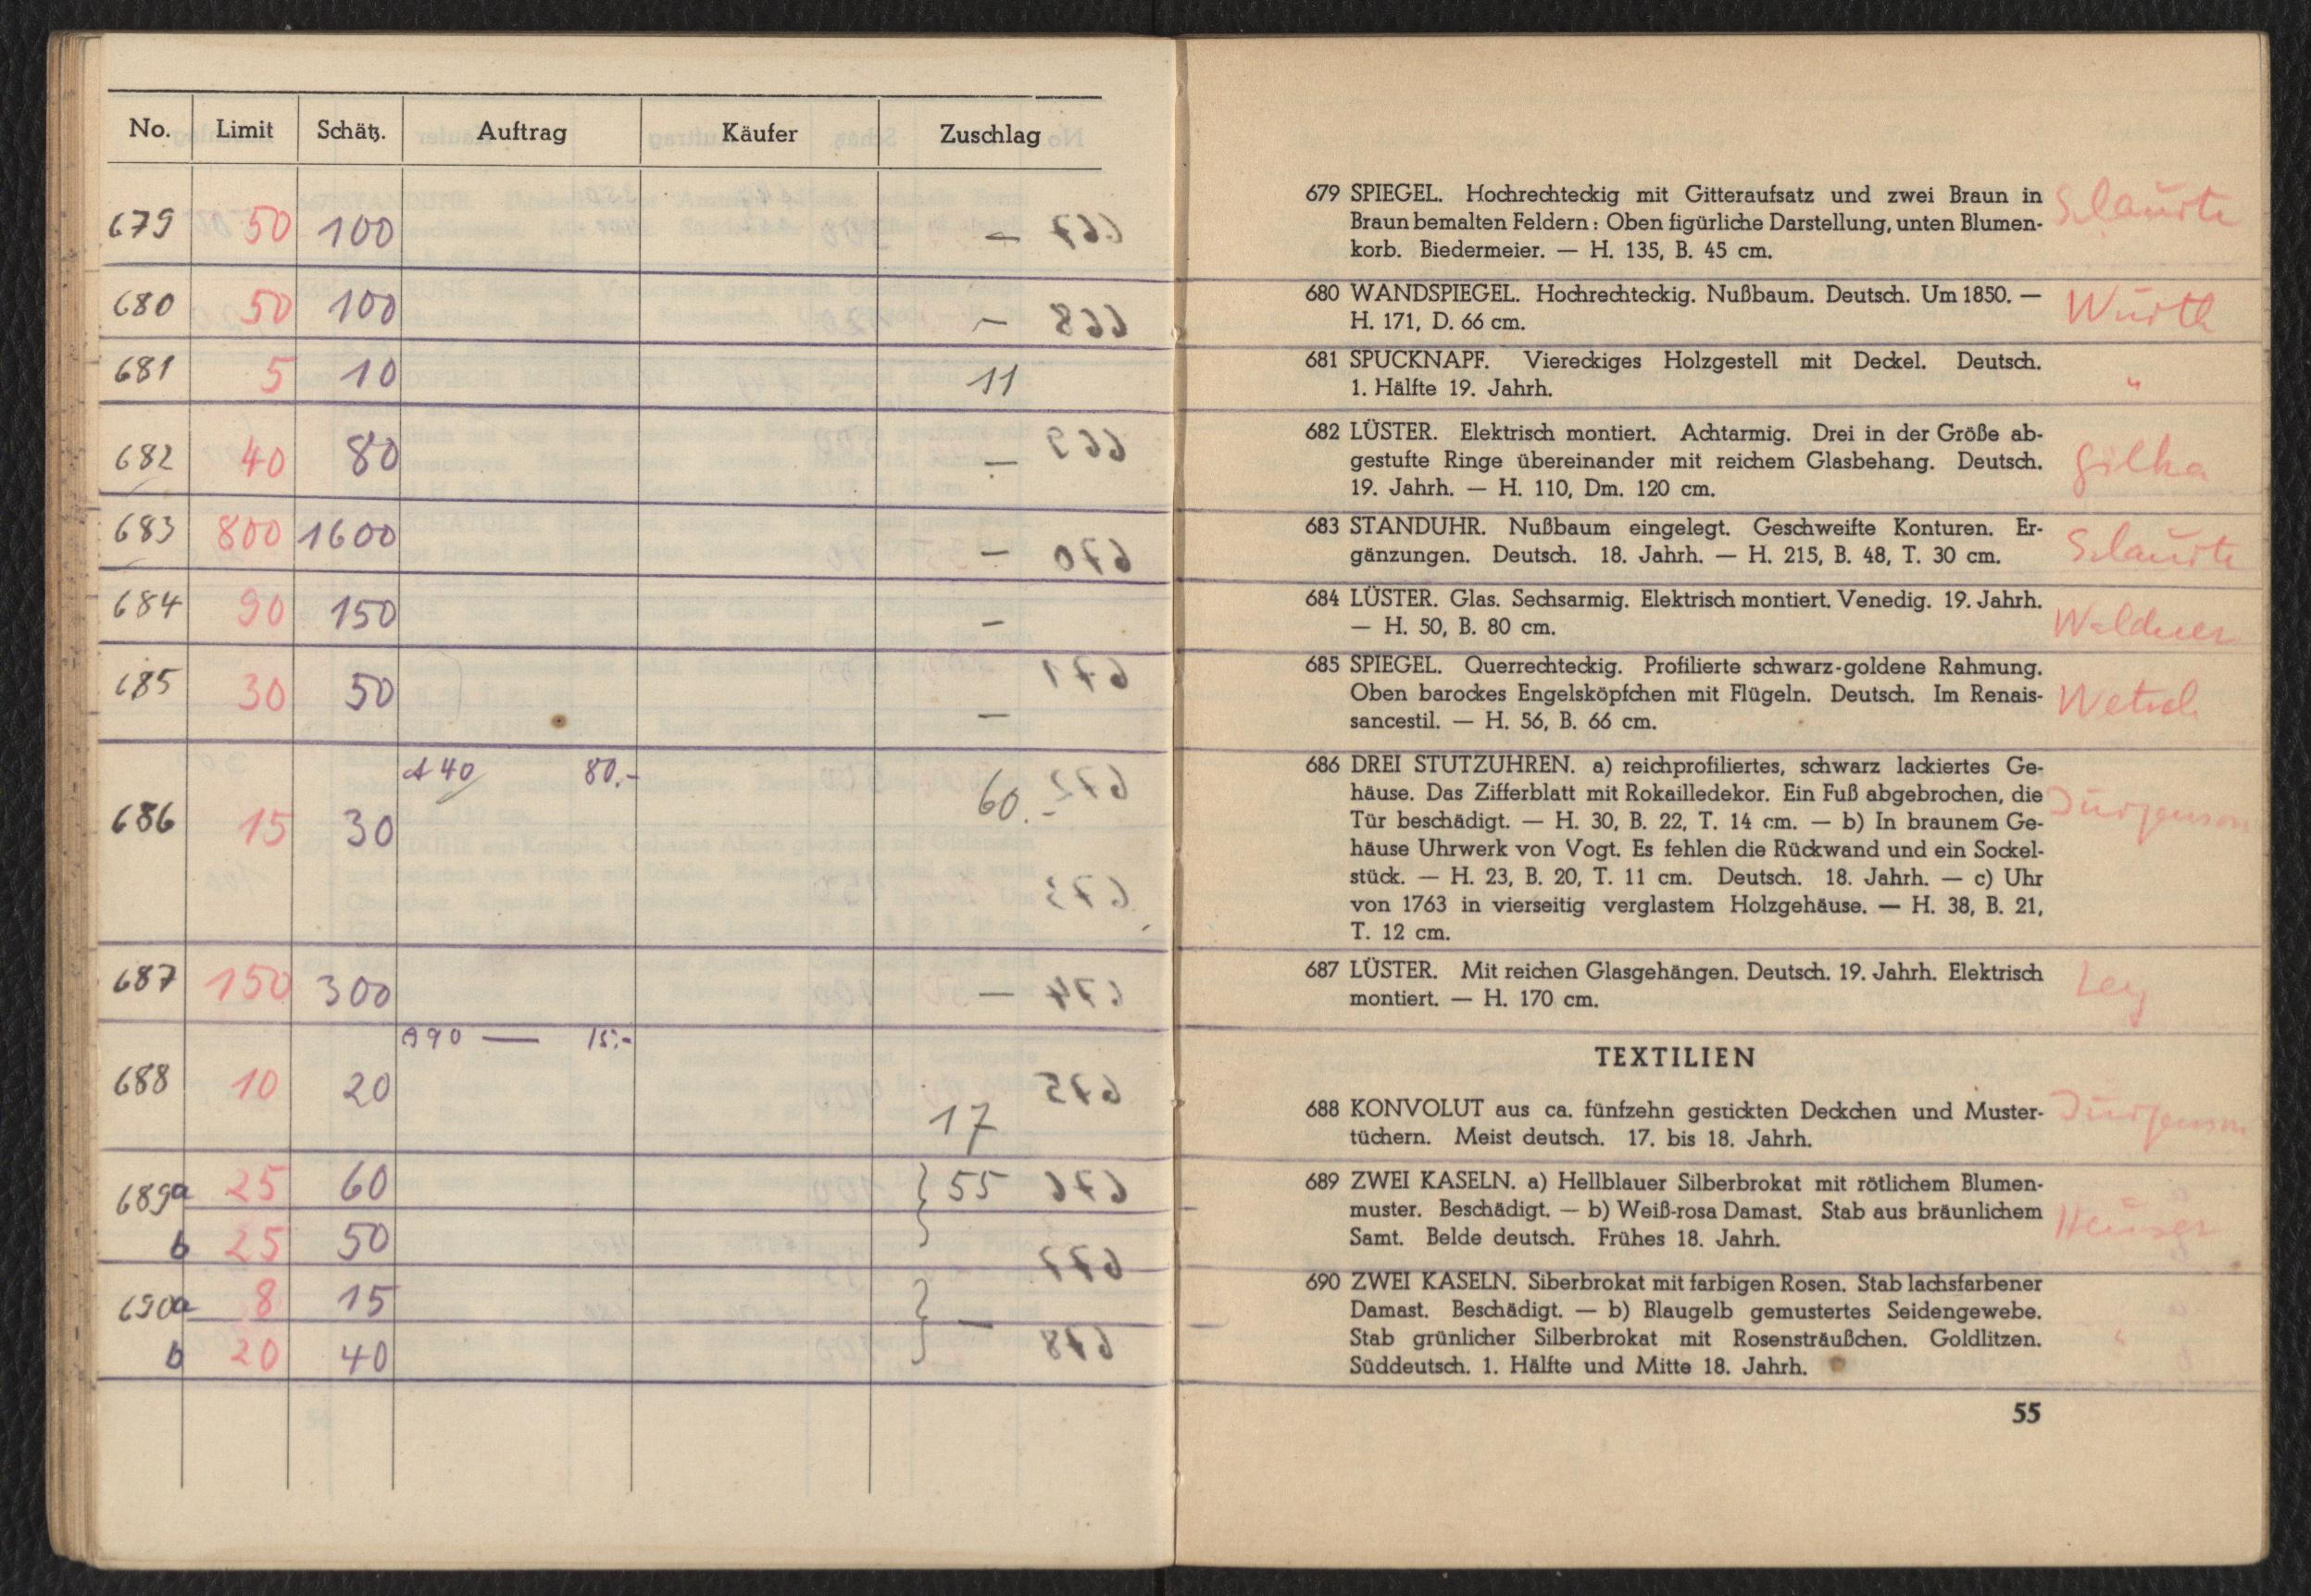 No. Limit Schätz. Auftrag Käufer Zuschlag
679 50 100 —
680 50 100 —
681 5 10 11
682 40 80 —
683 800 1600 —
684 90 150 —
685 30 50 —
A 40 80.-
686 15 30 60.-
687 150 300 —
A 90 — 15.-
688 10 20 17
689a 25 60 } 55
b 25 50
690a 8 15 } —
b 20 40
679 SPIEGEL. Hochrechteckig mit Gitteraufsatz und zwei Braun in
Braun bemalten Feldern: Oben figürliche Darstellung, unten Blumen-
korb. Biedermeier. — H. 135, B. 45 cm.
680 WANDSPIEGEL. Hochrechteckig. Nußbaum. Deutsch. Um 1850. —
Würth
H. 171, D. 66 cm.
681 SPUCKNAPF. Viereckiges Holzgestell mit Deckel. Deutsch.
1. Hälfte 19. Jahrh. "
682 LÜSTER. Elektrisch montiert. Achtarmig. Drei in der Größe ab-
gestufte Ringe übereinander mit reichem Glasbehang. Deutsch. Gilka
19. Jahrh. — H. 110, Dm. 120 cm.
683 STANDUHR. Nußbaum eingelegt. Geschweifte Konturen. Er-
gänzungen. Deutsch. 18. Jahrh. — H. 215, B. 48, T. 30 cm.
684 LÜSTER. Glas. Sechsarmig. Elektrisch montiert. Venedig. 19. Jahrh.
— H. 50, B. 80 cm. Waldner
685 SPIEGEL. Querrechteckig. Profilierte schwarz-goldene Rahmung.
Oben barockes Engelsköpfchen mit Flügeln. Deutsch. Im Renais- Wetsch
sancestil. — H. 56, B. 66 cm.
686 DREI STUTZUHREN. a) reichprofiliertes, schwarz lackiertes Ge-
häuse. Das Zifferblatt mit Rokailledekor. Ein Fuß abgebrochen, die
Tür beschädigt. — H. 30, B. 22, T. 14 cm. — b) In braunem Ge- Jürgenson
häuse Uhrwerk von Vogt. Es fehlen die Rückwand und ein Sockel-
stück. — H. 23, B. 20, T. 11 cm. Deutsch. 18. Jahrh. — c) Uhr
von 1763 in vierseitig verglastem Holzgehäuse. — H. 38, B. 21,
T. 12 cm.
687 LÜSTER. Mit reichen Glasgehängen. Deutsch. 19. Jahrh. Elektrisch
montiert. — H. 170 cm. Ley
TEXTILIEN
688 KONVOLUT aus ca. fünfzehn gestickten Deckchen und Muster- Jürgenson
tüchern. Meist deutsch. 17. bis 18. Jahrh.
689 ZWEI KASELN. a) Hellblauer Silberbrokat mit rötlichem Blumen-
muster. Beschädigt. — b) Weiß-rosa Damast. Stab aus bräunlichem
Samt. Belde deutsch. Frühes 18. Jahrh.
690 ZWEI KASELN. Siberbrokat mit farbigen Rosen. Stab lachsfarbener
Damast. Beschädigt. — b) Blaugelb gemustertes Seidengewebe.
Stab grünlicher Silberbrokat mit Rosensträußchen. Goldlitzen. "
Süddeutsch. 1. Hälfte und Mitte 18. Jahrh.
55